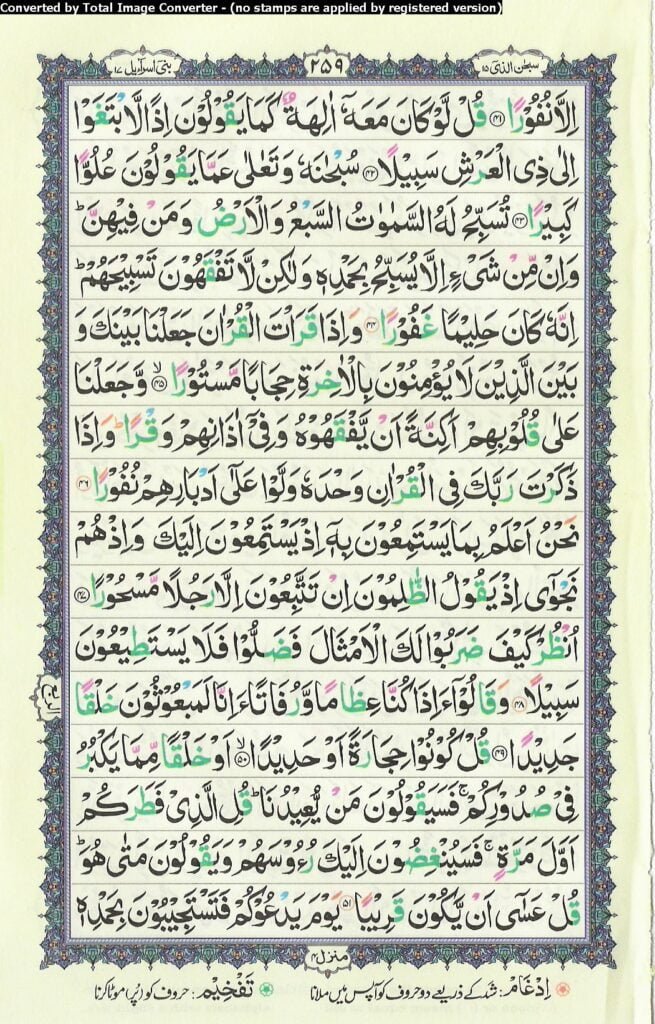 Converted by Total Image Converter - (no stamps are applied by registered version)
سبحٰن الذی ۱۵
۲۵۹
بنی اسرآءیل ۱۷
اِلَّا نُفُوْرًا ﴿۴۱﴾ قُلْ لَّوْ كَانَ مَعَهٗۤ اٰلِهَةٌ كَمَا یَقُوْلُوْنَ اِذًا لَّابْتَغَوْا
اِلٰى ذِی الْعَرْشِ سَبِیْلًا ﴿۴۲﴾ سُبْحٰنَهٗ وَ تَعٰلٰى عَمَّا یَقُوْلُوْنَ عُلُوًّا
كَبِیْرًا ﴿۴۳﴾ تُسَبِّحُ لَهُ السَّمٰوٰتُ السَّبْعُ وَ الْاَرْضُ وَ مَنْ فِیْهِنَّ ؕ
وَ اِنْ مِّنْ شَیْءٍ اِلَّا یُسَبِّحُ بِحَمْدِهٖ وَ لٰكِنْ لَّا تَفْقَهُوْنَ تَسْبِیْحَهُمْ ؕ
اِنَّهٗ كَانَ حَلِیْمًا غَفُوْرًا ﴿۴۴﴾ وَ اِذَا قَرَاْتَ الْقُرْاٰنَ جَعَلْنَا بَیْنَكَ وَ
بَیْنَ الَّذِیْنَ لَا یُؤْمِنُوْنَ بِالْاٰخِرَةِ حِجَابًا مَّسْتُوْرًا ﴿ۙ۴۵﴾ وَّ جَعَلْنَا
عَلٰى قُلُوْبِهِمْ اَكِنَّةً اَنْ یَّفْقَهُوْهُ وَ فِیْۤ اٰذَانِهِمْ وَقْرًا ؕ وَ اِذَا
ذَكَرْتَ رَبَّكَ فِی الْقُرْاٰنِ وَحْدَهٗ وَلَّوْا عَلٰۤى اَدْبَارِهِمْ نُفُوْرًا ﴿۴۶﴾
نَحْنُ اَعْلَمُ بِمَا یَسْتَمِعُوْنَ بِهٖۤ اِذْ یَسْتَمِعُوْنَ اِلَیْكَ وَ اِذْ هُمْ
نَجْوٰۤى اِذْ یَقُوْلُ الظّٰلِمُوْنَ اِنْ تَتَّبِعُوْنَ اِلَّا رَجُلًا مَّسْحُوْرًا ﴿۴۷﴾
اُنْظُرْ كَیْفَ ضَرَبُوْا لَكَ الْاَمْثَالَ فَضَلُّوْا فَلَا یَسْتَطِیْعُوْنَ
سَبِیْلًا ﴿۴۸﴾ وَ قَالُوْۤا ءَاِذَا كُنَّا عِظَامًا وَّ رُفَاتًا ءَاِنَّا لَمَبْعُوْثُوْنَ خَلْقًا
جَدِیْدًا ﴿۴۹﴾ قُلْ كُوْنُوْا حِجَارَةً اَوْ حَدِیْدًا ﴿ۙ۵۰﴾ اَوْ خَلْقًا مِّمَّا یَكْبُرُ
فِیْ صُدُوْرِكُمْ ۚ فَسَیَقُوْلُوْنَ مَنْ یُّعِیْدُنَا ؕ قُلِ الَّذِیْ فَطَرَكُمْ
اَوَّلَ مَرَّةٍ ۚ فَسَیُنْغِضُوْنَ اِلَیْكَ رُءُوْسَهُمْ وَ یَقُوْلُوْنَ مَتٰى هُوَ ؕ
قُلْ عَسٰۤى اَنْ یَّكُوْنَ قَرِیْبًا ﴿۵۱﴾ یَوْمَ یَدْعُوْكُمْ فَتَسْتَجِیْبُوْنَ بِحَمْدِهٖ
منزل ۴
اِدْغَامْ: شد کے ذریعے دو حروف کو آپس میں ملانا
تَفْخِیْم: حروف کو (پُر) موٹا کرنا